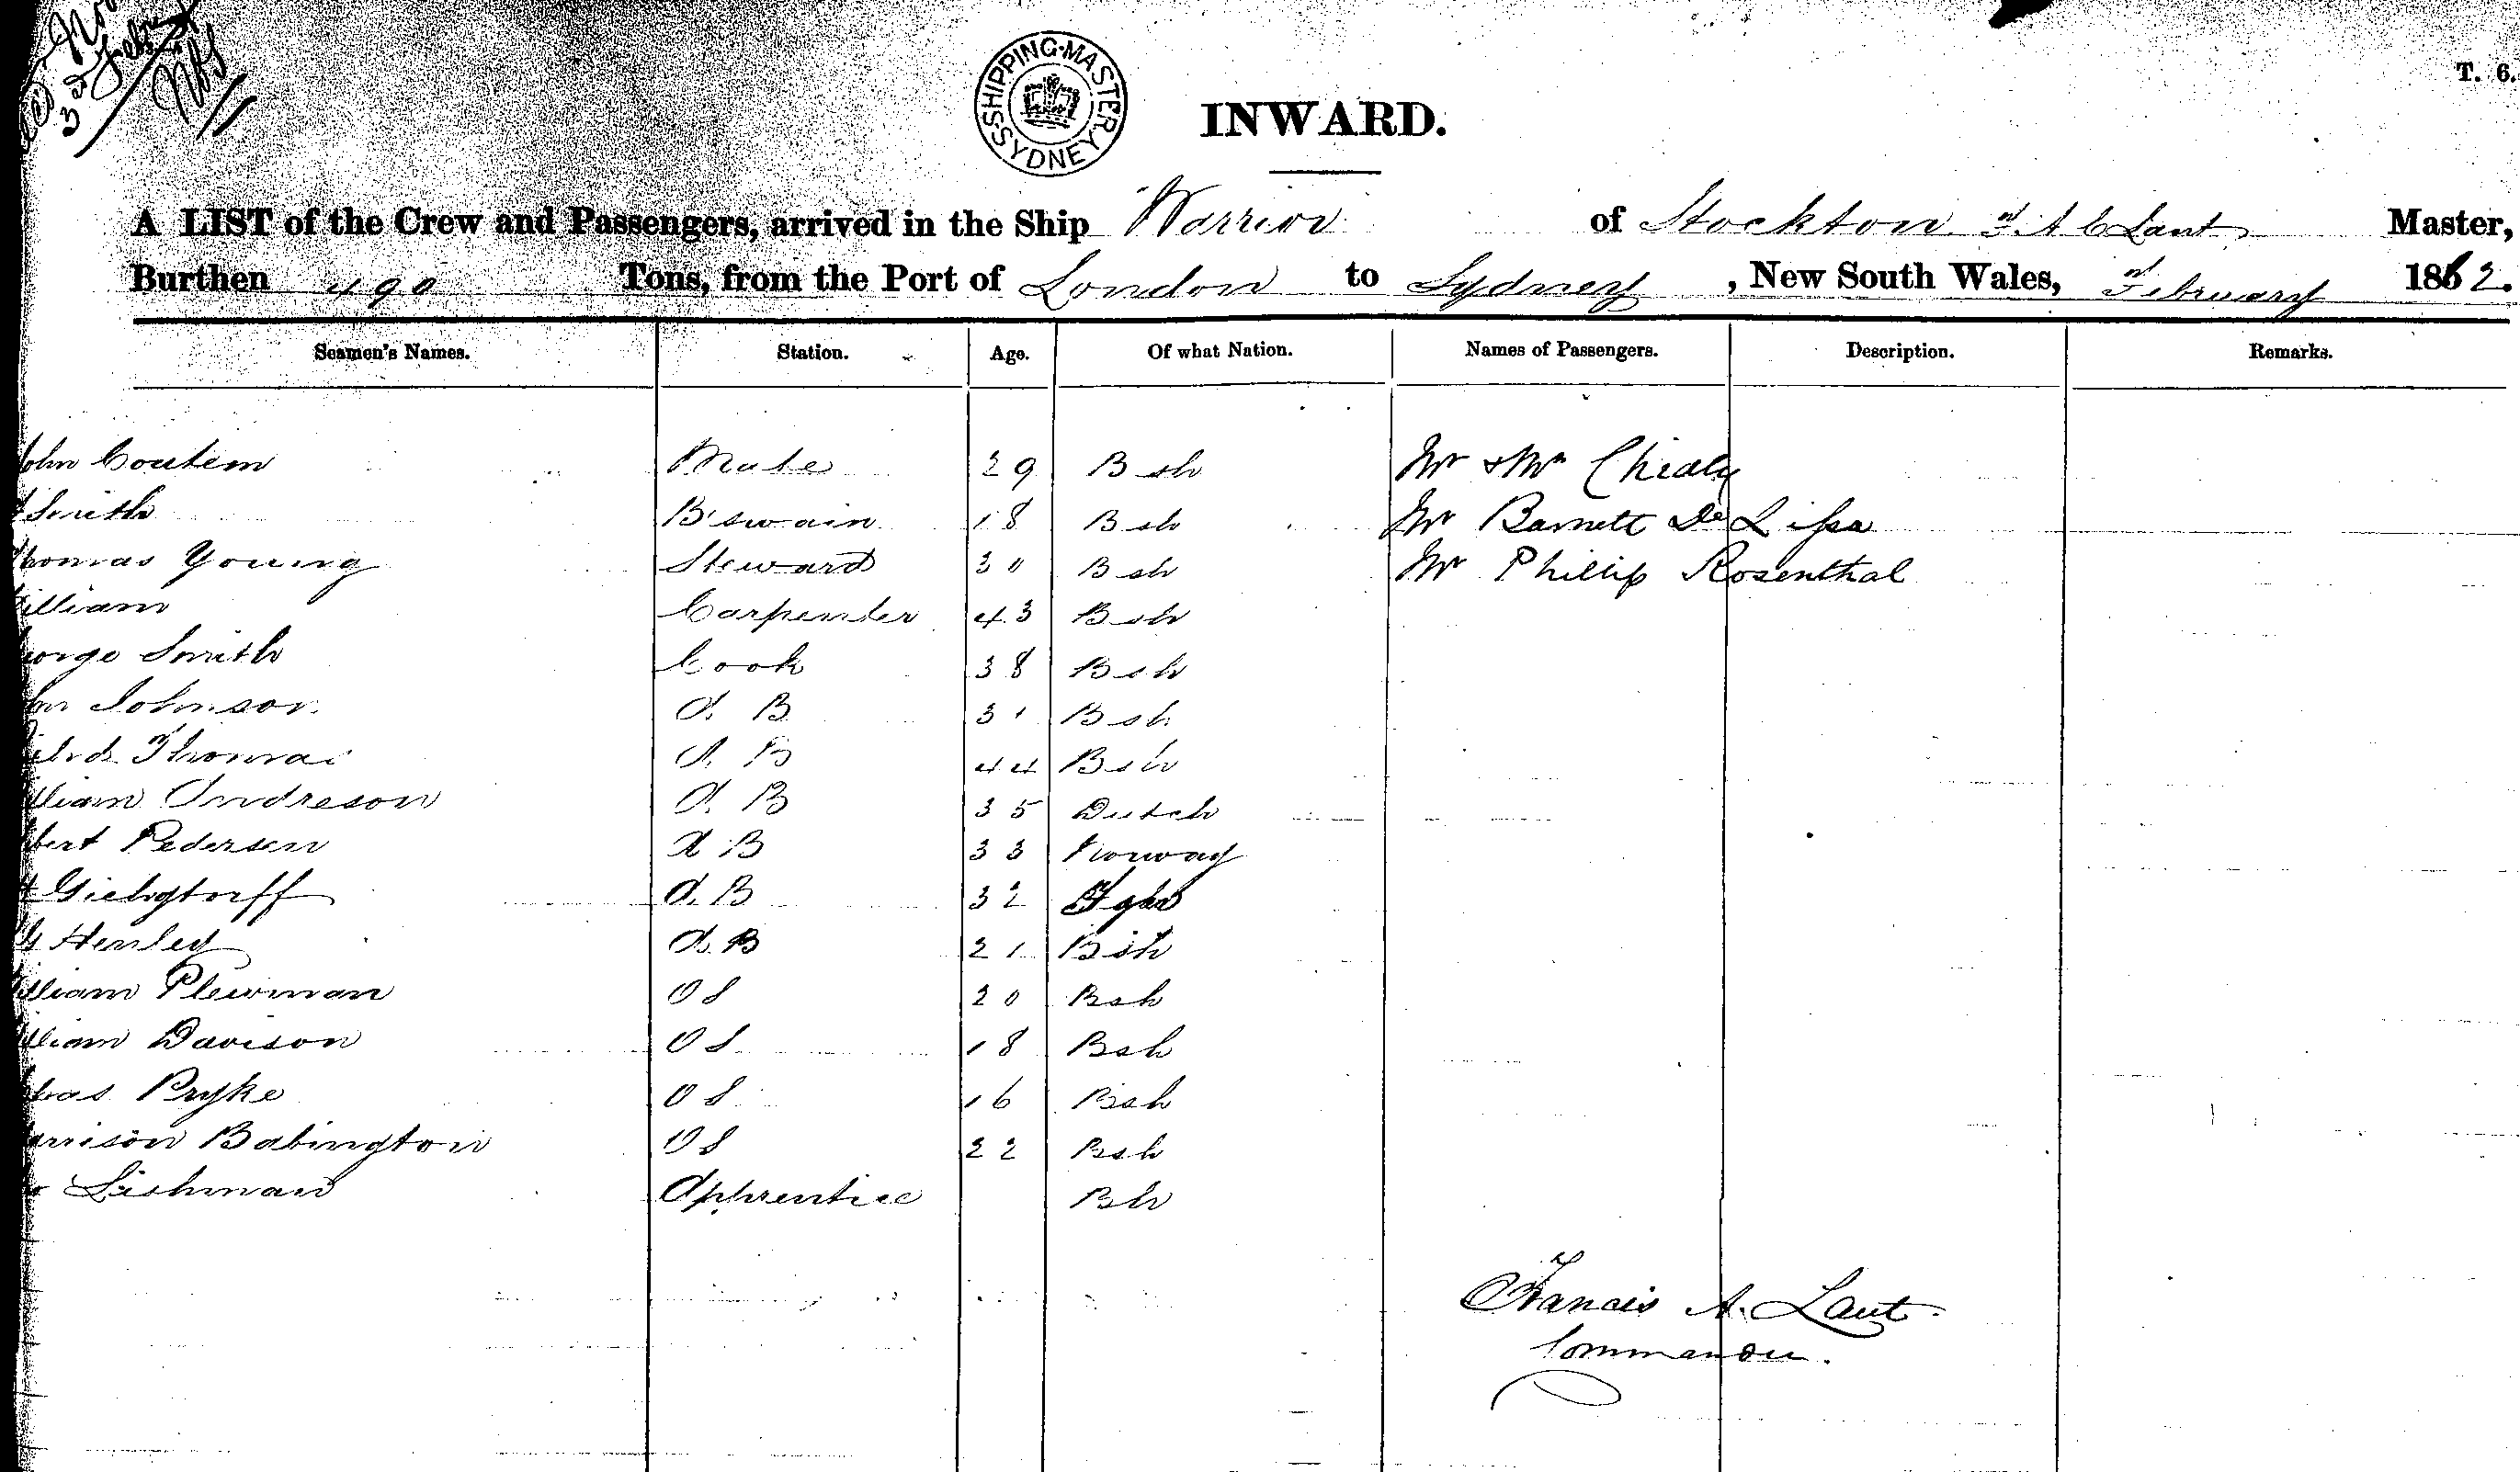 3rd Feby
SHIPPING-MASTERS-SYDNEY
T. 6.
INWARD.
A LIST of the Crew and Passengers, arrived in the Ship Warrior of Stockton F. A. Laut Master,
Burthen 490 Tons, from the Port of London to Sydney, New South Wales, February 1862.
Seamen's Names. Station. Age. Of what Nation. Names of Passengers. Description. Remarks.
ohn Coutem Mate 29 Bsh Mr & Mrs
Smith B'swain 18 Bsh Mr Barnett De Lissa
homas Young Steward 30 Bsh Mr Phillip Rosenthal
illiam Carpenter 43 Bsh
orge Smith Cook 38 Bsh
Johnson A. B 31 Bsh
Thomas A. B 44 Bsh
lliam Andreson A. B 35 Dutch
bert Pedersen A B 33 Norway
A. B 32
Henley A. B 21 Bsh
lliam Plewman O S 20 Bsh
lliam Davison O S 18 Bsh
has Pryke O S 16 Bsh
arrison Babington O S 22 Bsh
Lishman Apprentice Bh
Francis A. Laut.
Commander.